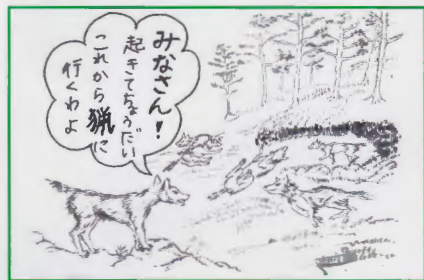 みなさん！
起きてちょうだい
これから猟に
行くわよ